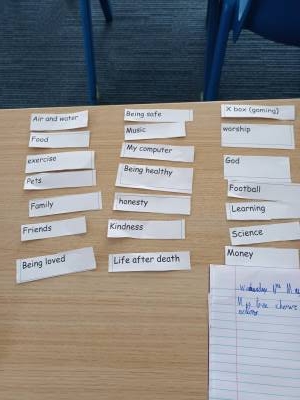 Air and water
Food
exercise
Pets
Family
Friends
Being loved
Being safe
Music
My computer
Being healthy
honesty
Kindness
Life after death
X box (gaming)
worship
God
Football
Learning
Science
Money